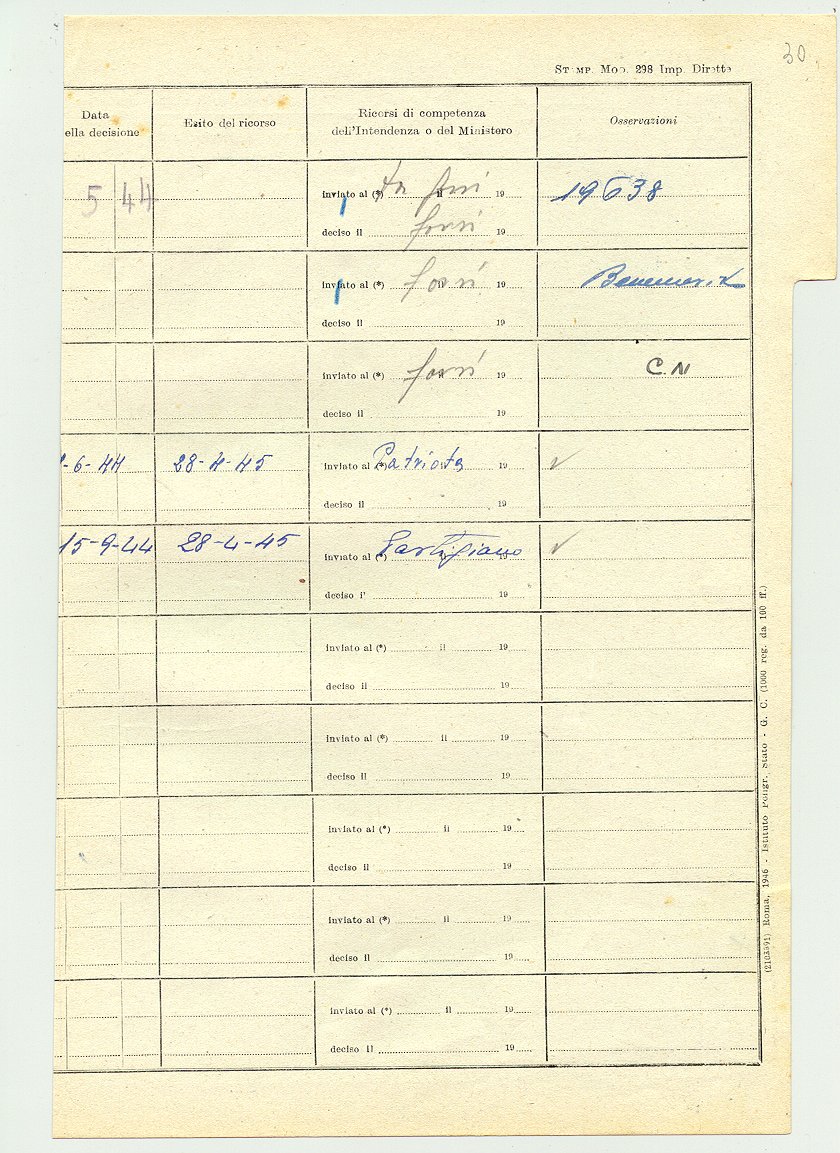 30
STAMP. MOD. 298 Imp. Dirette
Data
ella decisione
Esito del ricorso
Ricorsi di competenza
dell'Intendenza o del Ministero
Osservazioni
5 44
inviato al (*) il 19
19638
deciso il 19
inviato al (*) il 19
deciso il 19
inviato al (*) il 19
C.N
deciso il 19
-6-44
28-4-45
inviato al (*) Patriota 19
deciso il 19
15-9-44
28-4-45
inviato al (*) Partigiano 19
deciso i' 19
inviato al (*) il 19
deciso il 19
inviato al (*) il 19
deciso il 19
inviato al (*) il 19
deciso il 19
inviato al (*) il 19
deciso il 19
inviato al (*) il 19
deciso il 19
Roma, 1946 - Istituto Poligr. Stato - G. C. (1000 reg. da 100 ff.)